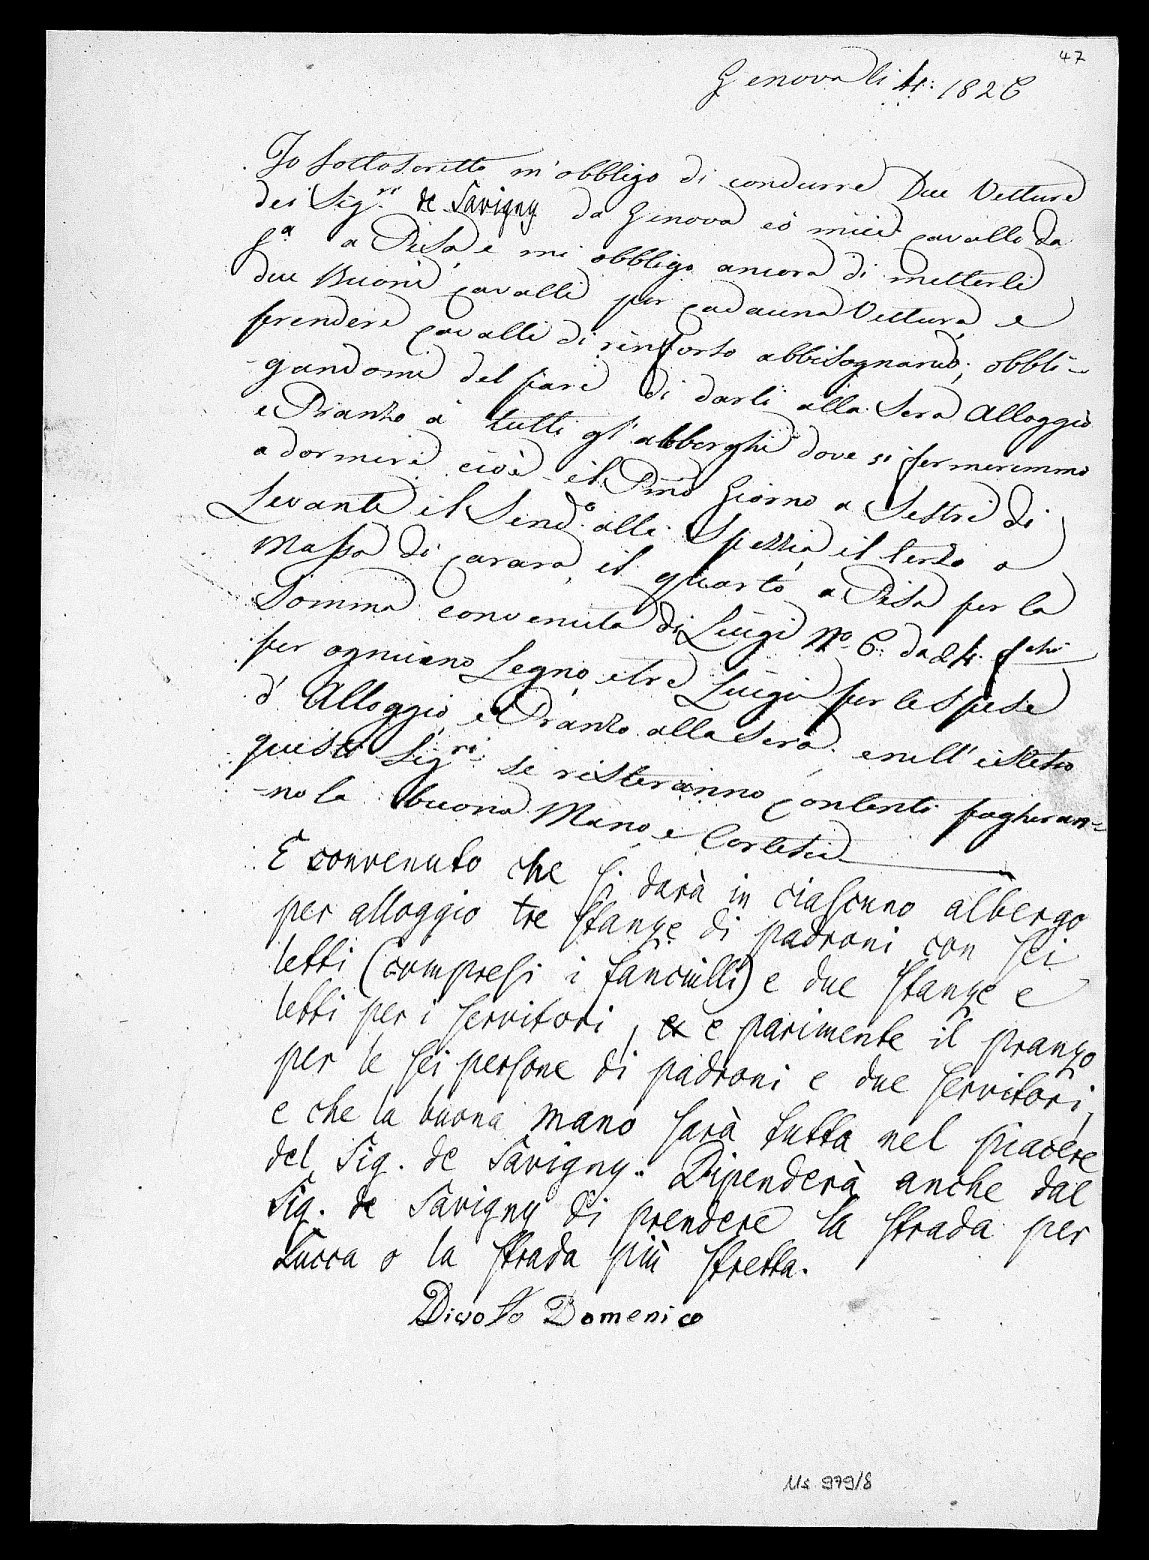 47
Genova li 4: 1826
Io sottoscritto m'obbligo di condurre Due Vetture
dei Sig.ri de Savigny da Genova co miei cavalli da
qa a Pisa, e mi obbligo ancora di metterli
due Buoni cavalli per cadauna Vettura, e
prendere cavalli di rinforso abbisognando; obbli-
-gandomi del pari di darli alla Sera Alloggio
e Pranzo à tutti gl'alberghi dove si fermeremmo
a dormire cioè il Pmo Giorno a Sestri di
Levante il Send.o alla Spezzia, il terzo a
Massa di Carara, il quarto a Pisa per la
Somma convenuta di Luigi No 6: da 24: fchi
per ogniuno Legno, e tre Luigi per le spese
d'Alloggio, e Pranzo alla Sera. e nell' istesso
questi Sig.ri se resteranno contenti pagheran-
-no la buona Mano, e Cortesia
E convenuto che si darà in ciascuno albergo
per alloggio tre stanze di padroni con sei
letti (compresi i fanciulli) e due stanze e
letti per i servitori, e parimente il pranzo
per le sei persone di padroni e due servitori,
e che la buona mano sarà tutta nel piacere
del Sig. de Savigny. Dipenderà anche dal
Sig. de Savigny di prendere la strada per
Lucca o la strada più stretta.
Divoto Domenico
Ms 979/8